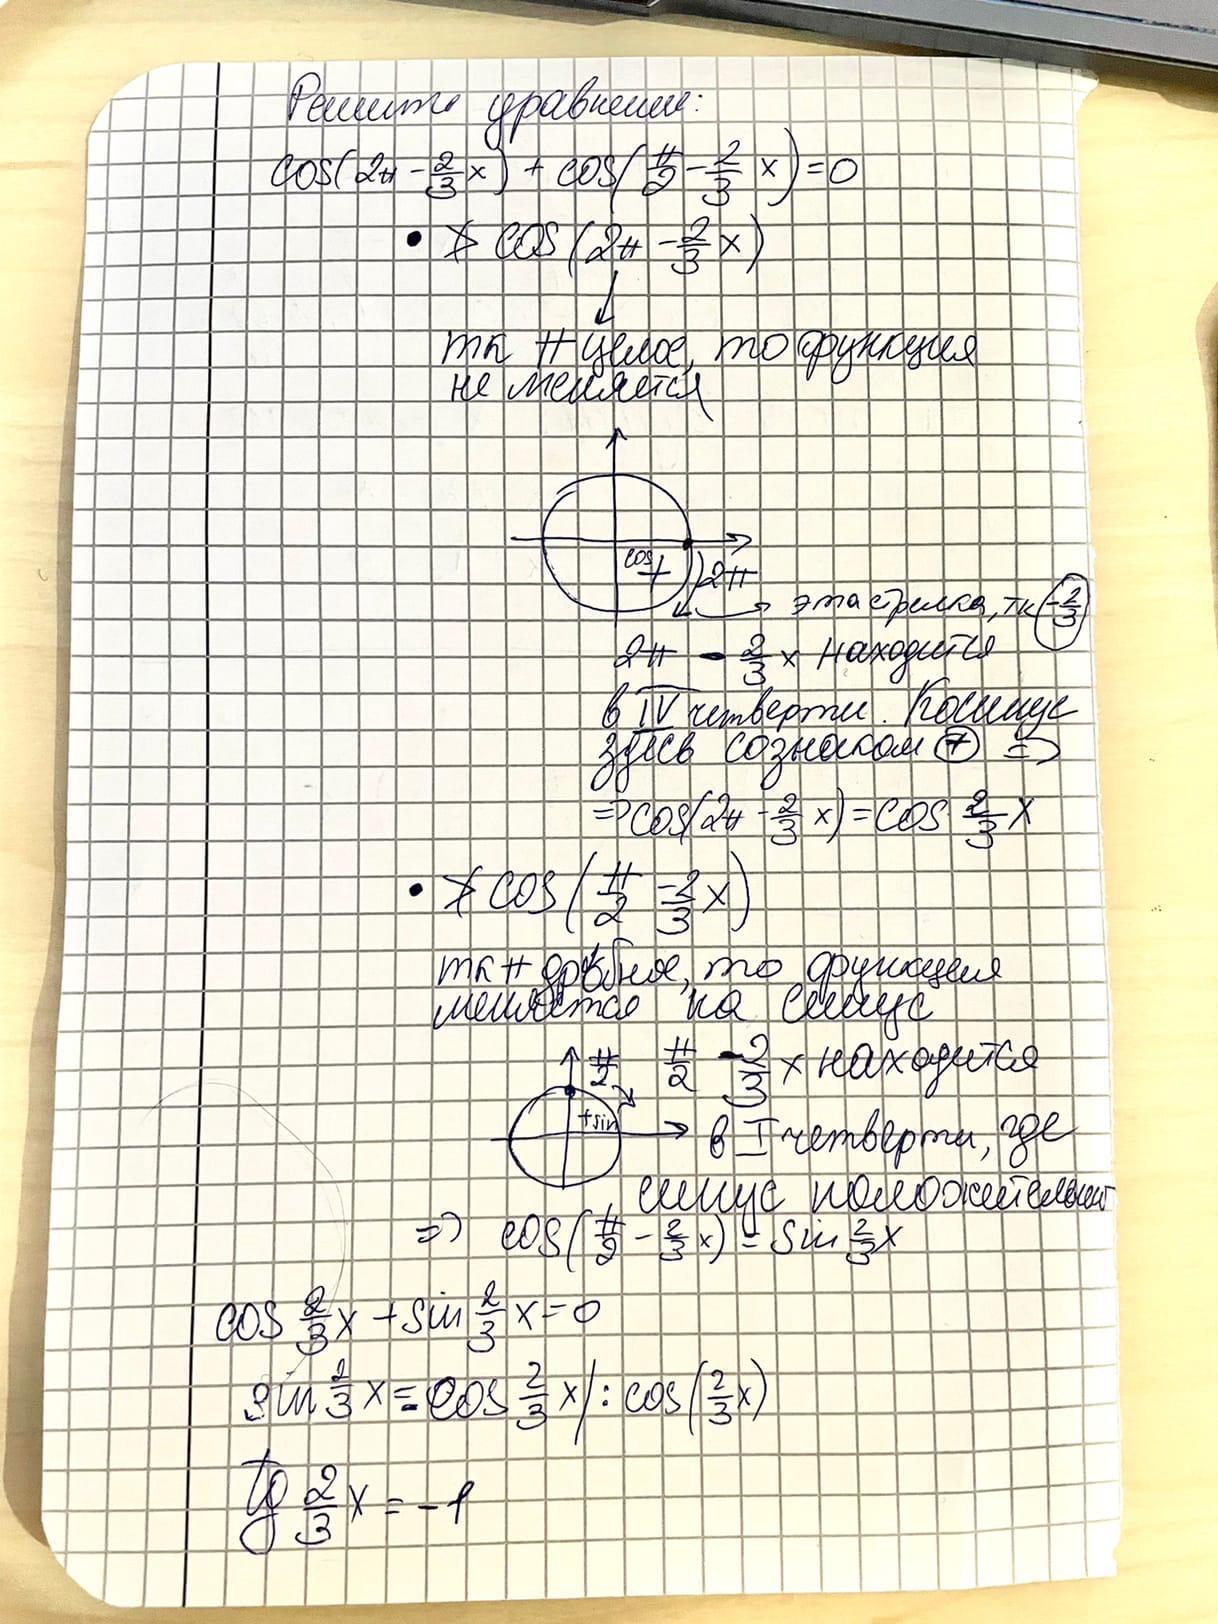 Решите уравнение:
cos(2π - 2/3 x) + cos(π/2 - 2/3 x) = 0
• cos(2π - 2/3 x)
тк π целое, то функция
не меняется
cos +
2π
эта стрелка, тк -2/3
2π - 2/3 x находится
в IV четверти. Косинус
здесь со знаком + =>
=> cos(2π - 2/3 x) = cos 2/3 x
• cos(π/2 - 2/3 x)
тк π дробное, то функция
меняется на синус
π/2
π/2 - 2/3 x находится
+ sin
в I четверти, где
синус положительный
=> cos(π/2 - 2/3 x) = sin 2/3 x
cos 2/3 x + sin 2/3 x = 0
sin 2/3 x = - cos 2/3 x / : cos(2/3 x)
tg 2/3 x = -1